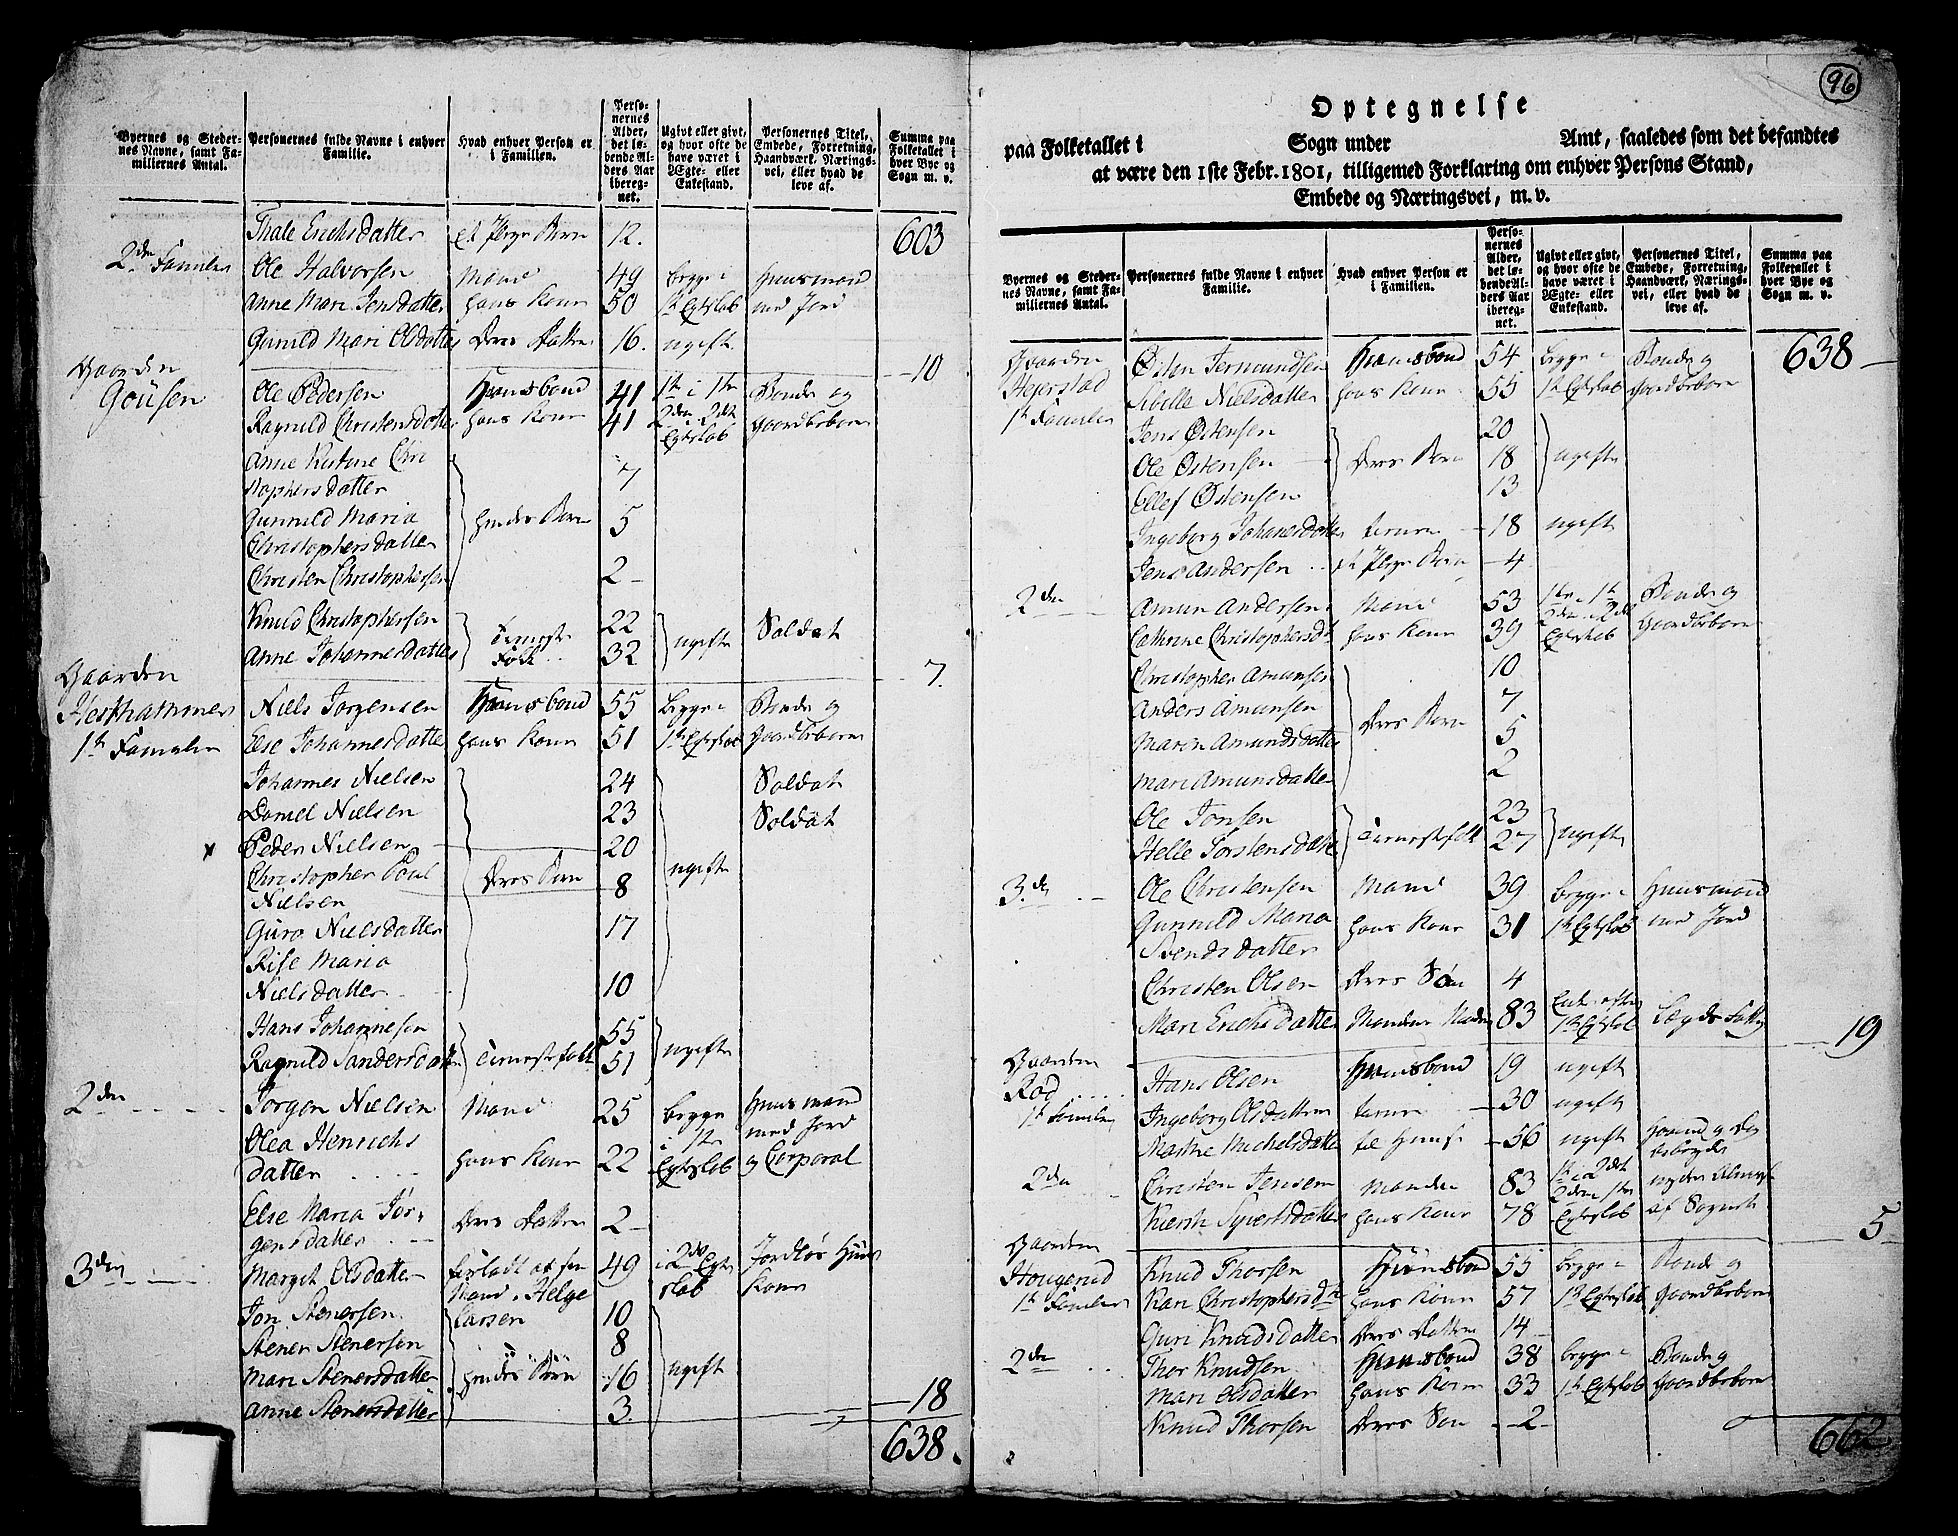 Byernes og Steder-
nes Navne, samt Fa-
miliernes Antal.
Personernes fulde Navne i enhver
Familie.
Hvad enhver Person er
i Familien.
Perso-
nernes
Alder,
det lø-
bende Al-
ders Aar
iberegnet.
Ugivt eller givt,
og hvor ofte de
have været i
Ægte- eller
Enkestand.
Personernes Titel,
Embede, Forretning,
Haandværk, Nærings-
vei, eller hvad de
leve af.
Summa paa
Folketallet i
hver Bye og
Sogn m. v.
Thale Erichsdatter et Pleje Barn 12. 603
2den Familie Ole Halvorsen Mand 49 begge i Huusmand
Anne Mari Jensdatter hans Kone 50 1te Egteskab med Jord
Gunild Mari Olsdatter Deres Datter 16. ugift
Gaarden 10
Gousen Ole Pedersen Huusbond 41 1te i 1te Bonde og
Ragnild Christensdatter hans Kone 41 2den 2det Gaardbeboer
Egteskab
Anne Kirstine Chri
stophersdatter 7
Gunnild Maria hendes Børn 5
Christophersdatter
Christen Christophersen 2
Knud Christophersen 22 Soldat
Anne Johannesdatter Tieneste Folk 32 ugifte
Gaarden 7.
Heskhammer Niels Jørgensen Huusbond 55 Begge i Bonde og
1te Familie Else Johannesdatter hans Kone 51 1te Egteskab Gaardbeboer
Johannes Nielsen 24 Soldat
Daniel Nielsen 23 Soldat
x Peder Nielsen 20
Christopher Poul Deres Børn 8 ugifte
Nielsen
Guro Nielsdatter 17
Rise Maria
Nielsdatter 10
Hans Johannesen 55
Ragnild Sandersdatter Tienestefolk 51 ugifte
2den Jørgen Nielsen Mand 25 begge Huusmand
Olea Henrichs i 1te med Jord
datter hans Kone 22 Egteskab og Corporal
Else Maria Jør-
gensdatter Deres Datter 2
3den Margit Olsdatter forladt af sin 49 i 2det Egte Jordløs Huus
Mand, Helge skab Kone
Jon Stenersen Larsen 10
Stener Stenersen 8
Mari Stenersdatter hendes Børn 16 ugift
Anne Stenersdatter 3. 18
638.
96
Optegnelse
paa Folketallet i Sogn under Amt, saaledes som det befandtes
at være den 1ste Febr. 1801, tilligemed Forklaring om enhver Persons Stand,
Embede og Næringsvei, m. v.
Byernes og Steder-
nes Navne, samt Fa-
miliernes Antal.
Personernes fulde Navne i enhver
Familie.
Hvad enhver Person er
i Familien.
Perso-
nernes
Alder,
det lø-
bende Al-
ders Aar
iberegnet.
Ugivt eller givt,
og hvor ofte de
have været i
Ægte- eller
Enkestand.
Personernes Titel,
Embede, Forretning,
Haandværk, Nærings-
vei, eller hvad de
leve af.
Summa paa
Folketallet i
hver Bye og
Sogn m. v.
Gaarden Østen Jermundsen Huusbond 54 begge i Bonde og 638
Hejerstad Sibelle Nielsdatter hans Kone 55 1te Egteskab Gaardbeboer
1te Familie Jens Østensen 20
Ole Østensen Deres Børn 18 ugifte
Ellef Østensen 13
Ingeborg Johannesdatter terne 18 ugift
Jens Andersen et Pleje Barn 4
2den Amun Andersen Mand 53 1te i 1te Bonde og
Cathrine Christophersdt hans Kone 39 2den i 2det Gaardbeboer
Egteskab
Christopher Amunsen 10
Anders Amunsen 7
Maren Amundsdatter Deres Børn 5
Mari Amunsdatter 2
Ole Jonsen 23
Helle Torstensdatter Tienestefolk 27 ugifte
3de Ole Christensen Mand 39 begge i Huusmand
Gunnild Maria hans Kone 31 1te Egteskab med Jord
Svendsdatter
Christen Olsen Deres Søn 4
Mari Erichsdatter Mandens Moder 83 Enke efter
1te Egteskab Lægds Fattig
19
Gaarden Hans Olsen Huusbond 19 ugift
Rød
1te Familie Ingeborg Olsdatter terne 30 ugift
Marthe Michelsdatter til Huuse 56 ugift
2den Christen Jensen Manden 83 1te i 2det nyder Almisse
Kiersti Syvertsdatter hans Kone 78 2den 1te af Sognet
Egteskab
Gaarden 5
Hougerud Knud Thorsen Huusbond 55 begge i Bonde og
1te Familie Kari Christophersdtr hans Kone 57 1te Egteskab Gaardbeboer
Guri Knudsdatter Deres Datter 14
2den Thor Knudsen Huusbond 38 begge i Bonde og
Mari Olsdatter hans Kone 33 1te Egteskab Gaardbeboer
Knud Thorsen Deres Søn 2
662